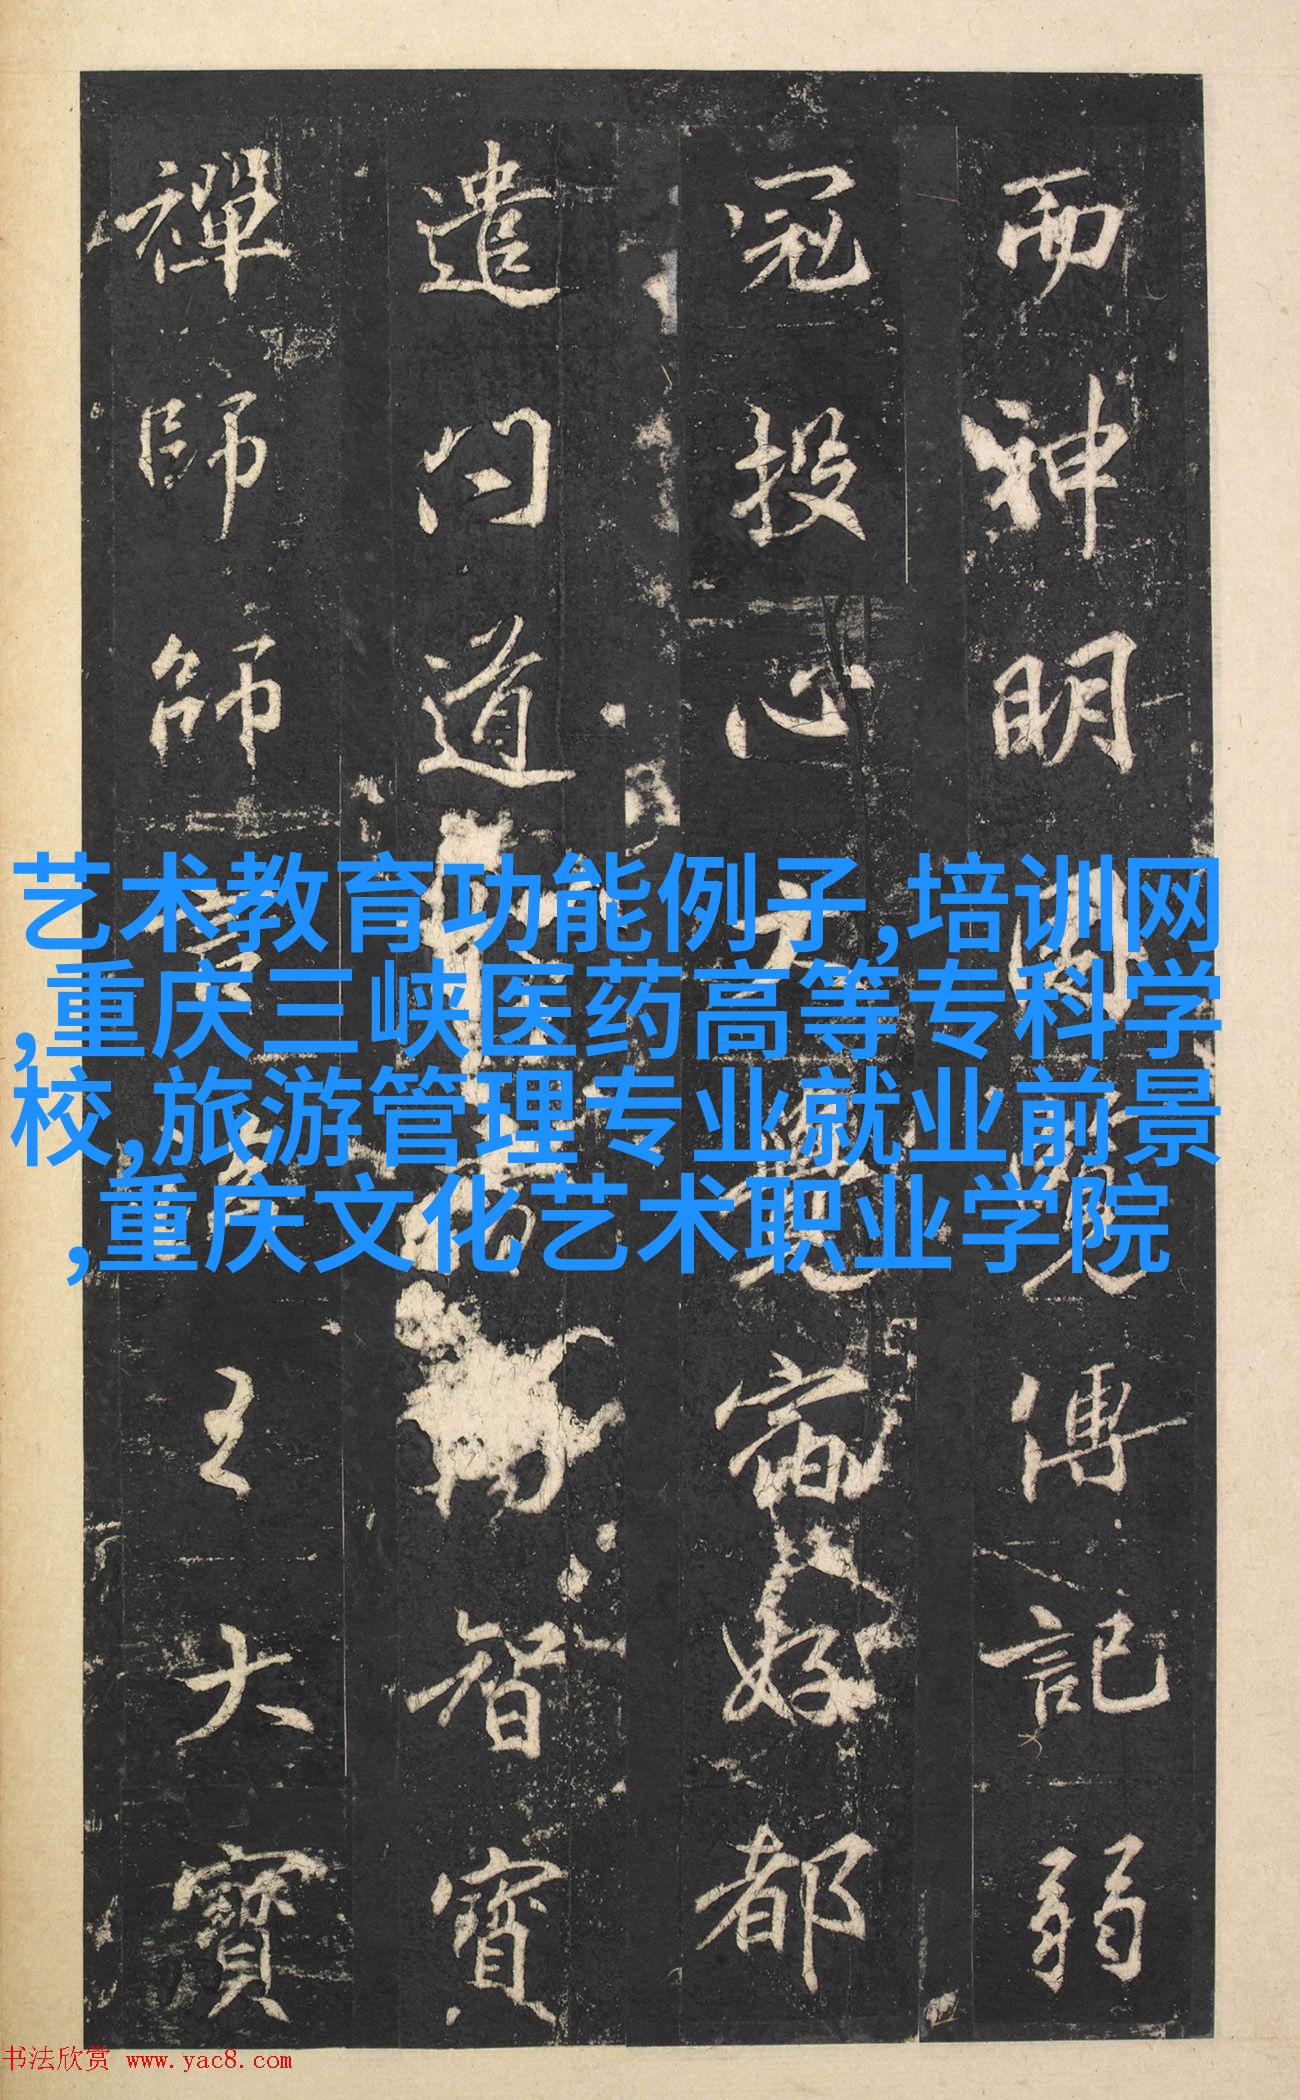 而神明傳記弱
冠投心大覺宿好都
遣問道智寶
禪師師王大寶
艺术教育功能例子,培训网
,重庆三峡医药高等专科学
校,旅游管理专业就业前景
,重庆文化艺术职业学院
书法欣赏 www.yac8.com